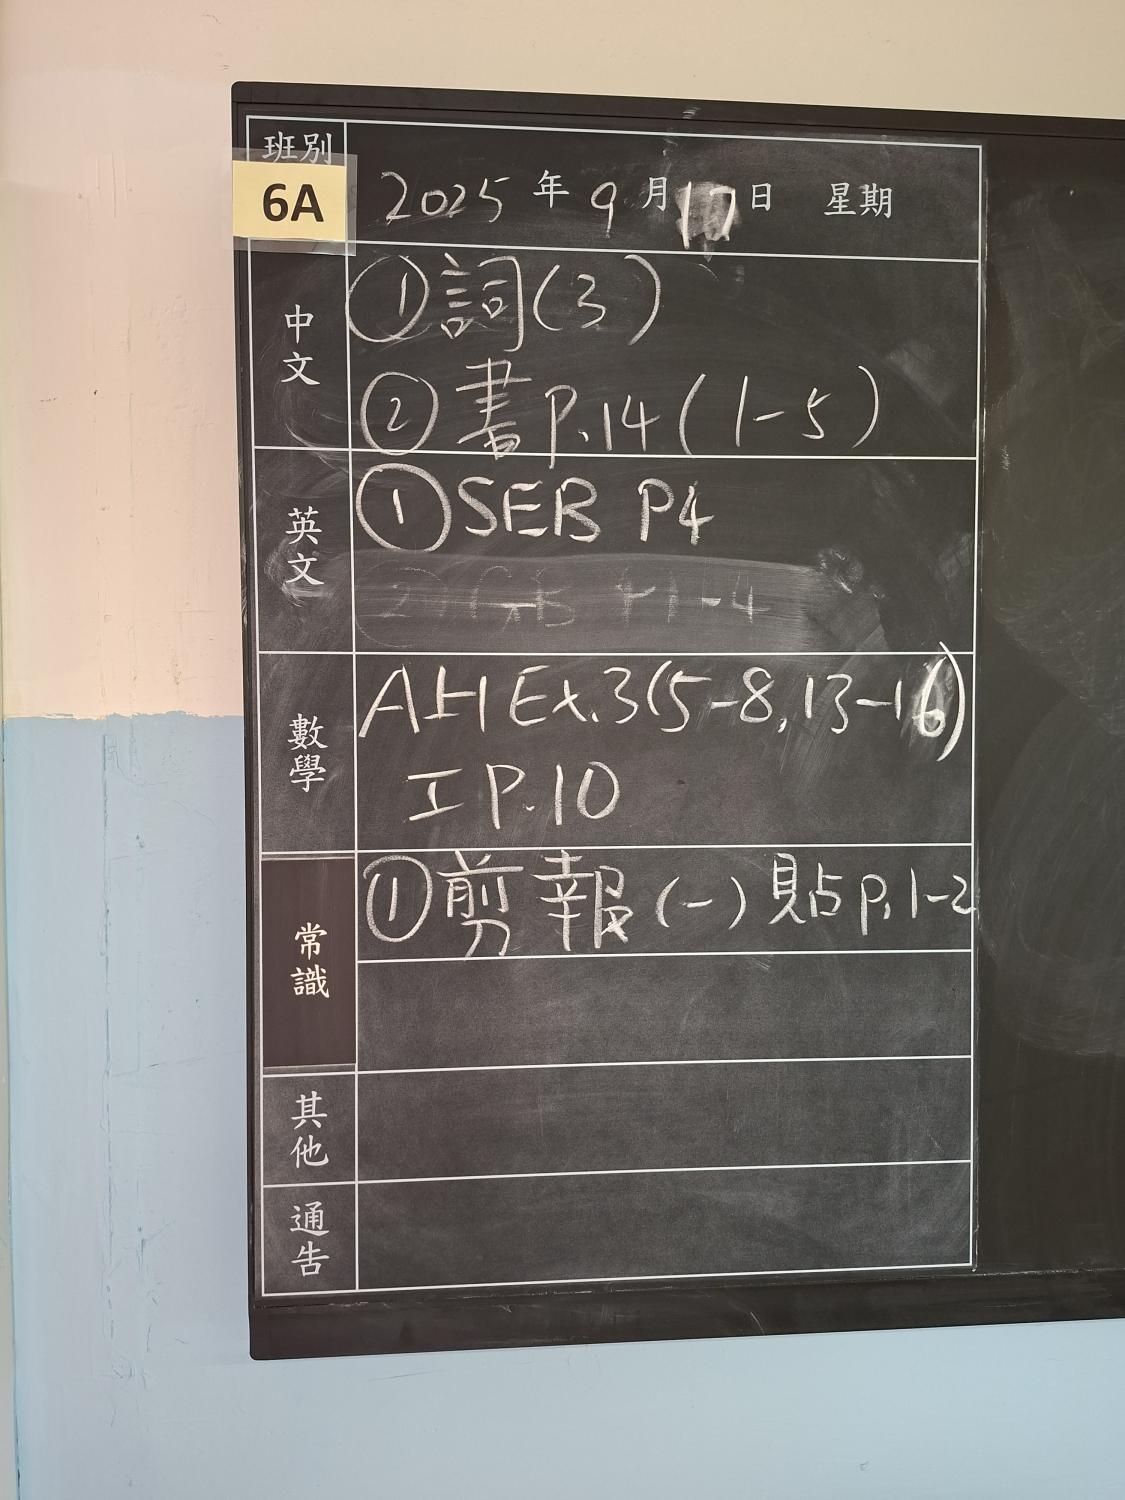 班別
6A
2025年9月17日 星期
中文
①詞(3)
②書p.14(1-5)
英文
①SEB P4
數學
AH Ex.3(5-8,13-16)
工P.10
常識
①剪報(一)貼p.1-2
其他
通告